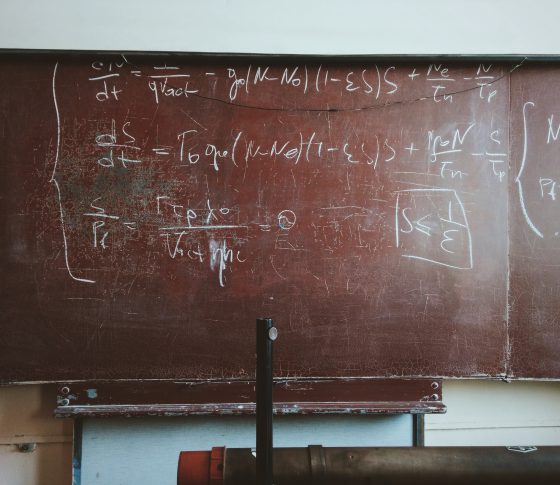 dN/dt = I/qVact - g₀(N-N₀)(1-εS)S + Ne/τn - N/τp
dS/dt = Γ₀g₀(N-N₀)(1-εS)S + N/τn - S/τp
S/Pf = Γτpλ₀/Vactηhc = ϑ
S ≤ 1/ε
N
Pf